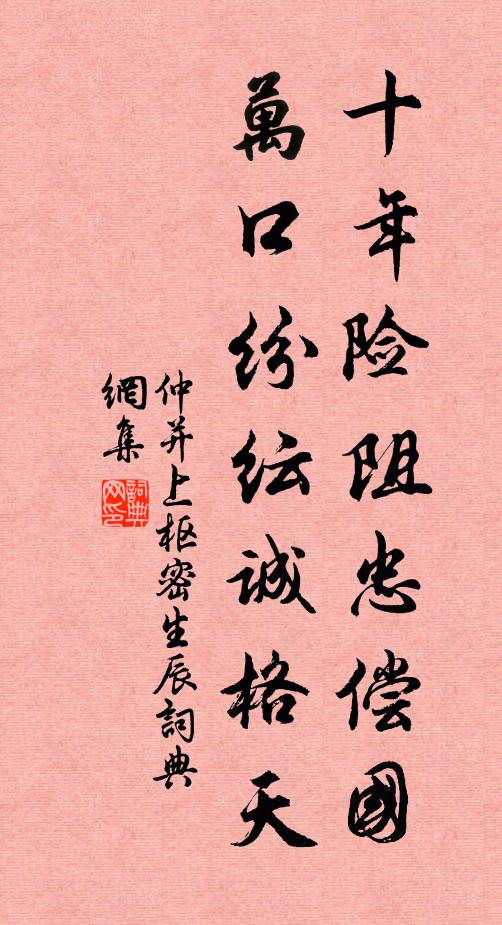 十年险阻忠偿國
萬口纷纭誠格天
仲并上枢密生辰詞典
網集
詞典网印